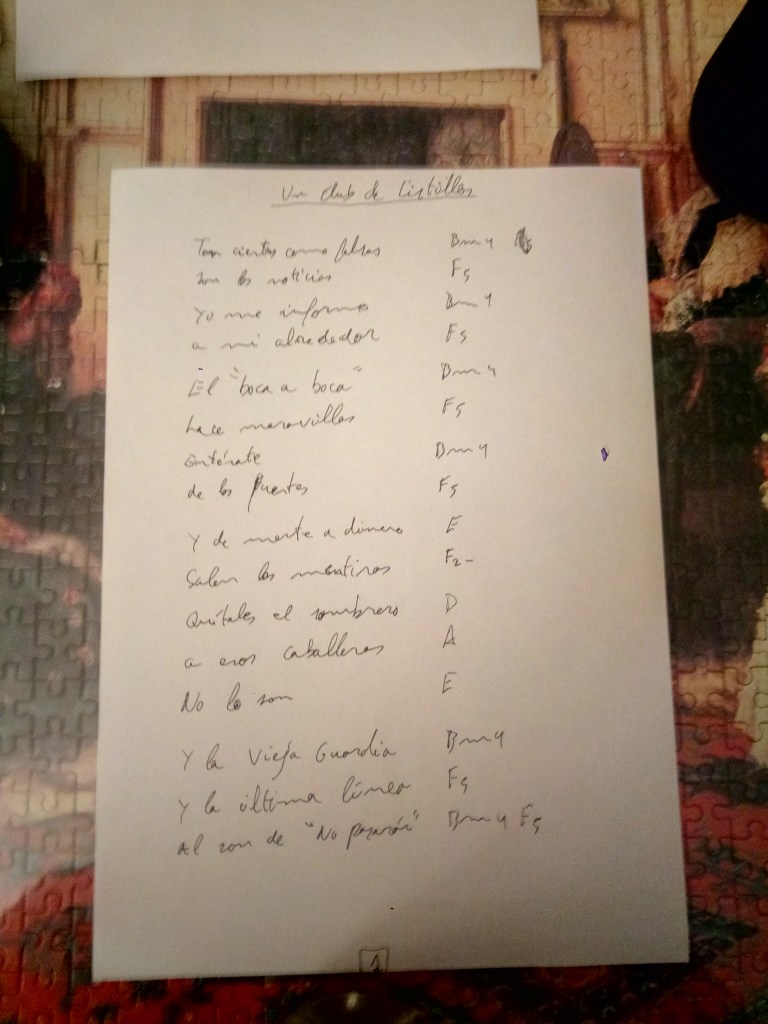 Un club de listillos
Tan ciertas como falsas Bm4
son las noticias F5
Yo me informo Bm4
a mi alrededor F5
El "boca a boca" Bm4
hace maravillas F5
Entérate Bm4
de las fuentes F5
Y de mente a dinero E
Salen las mentiras F2-
Quítales el sombrero D
a esos caballeros A
No lo son E
Y la Vieja Guardia Bm4
Y la última línea F5
Al son de "No pasarán" Bm4 F5
1